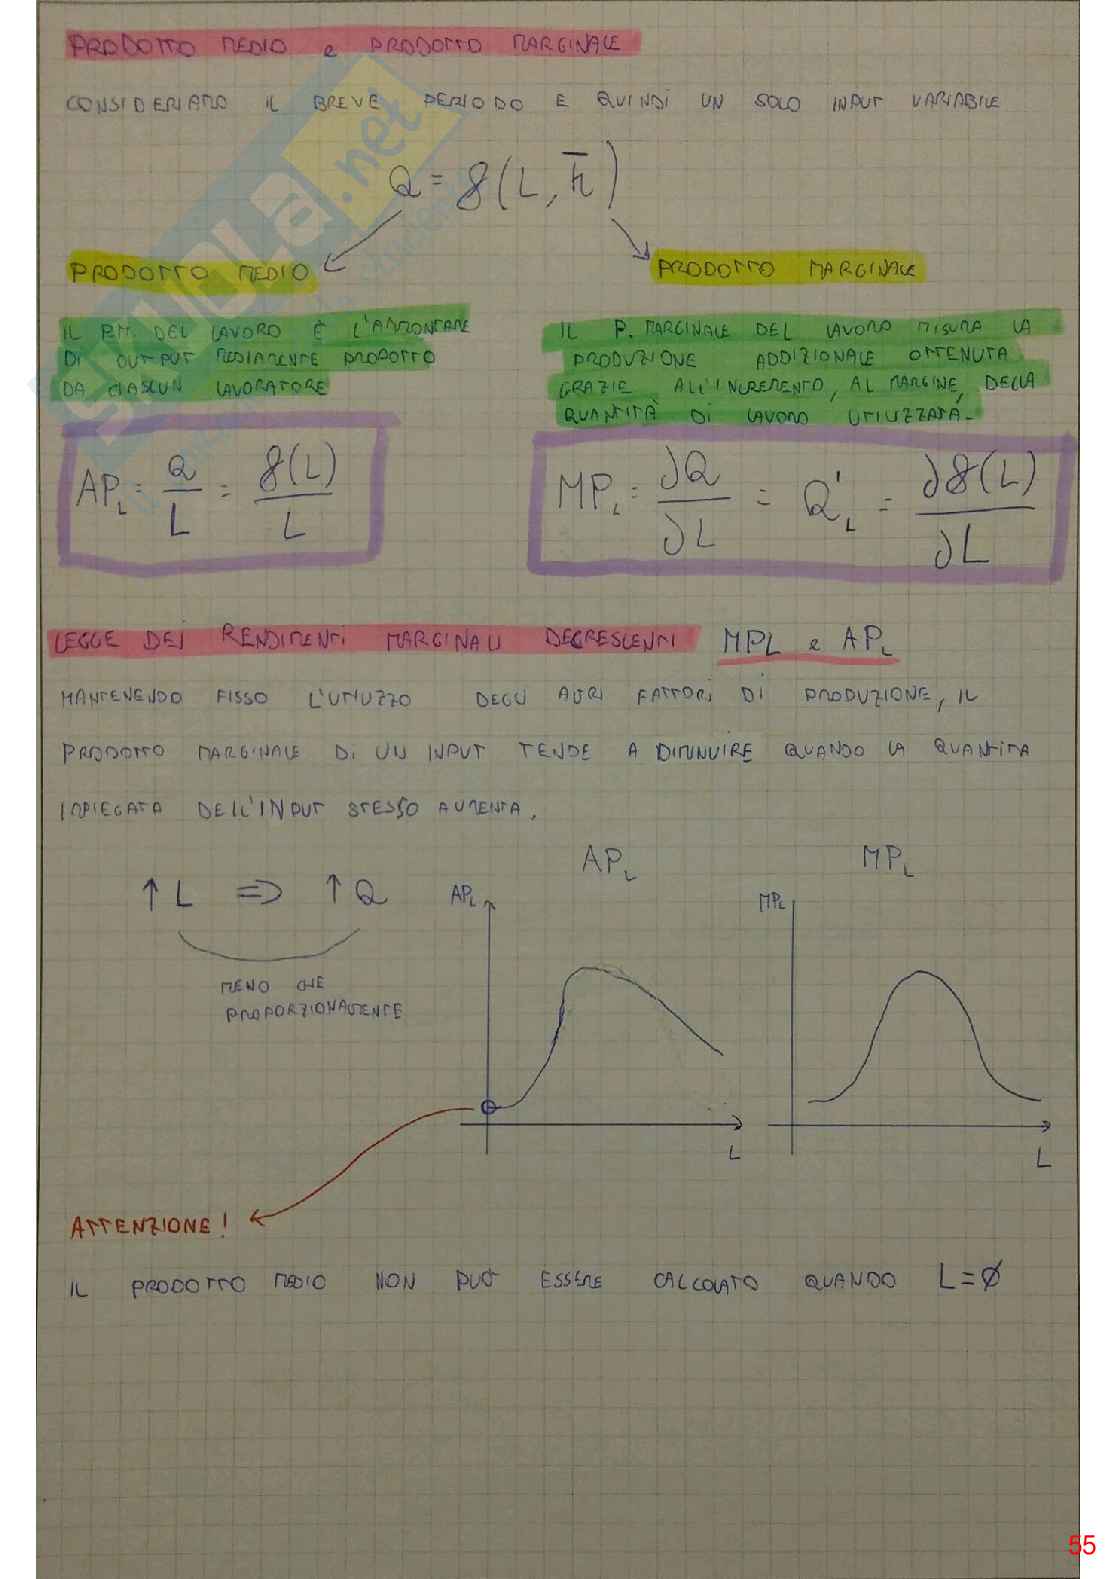 PRODOTTO MEDIO e PRODOTTO MARGINALE
CONSIDERIAMO IL BREVE PERIODO E QUINDI UN SOLO INPUT VARIABILE
Q = f(L, k̄)
PRODOTTO MEDIO
PRODOTTO MARGINALE
IL P.M. DEL LAVORO È L'AMMONTARE
DI OUTPUT MEDIAMENTE PRODOTTO
DA CIASCUN LAVORATORE
IL P. MARGINALE DEL LAVORO MISURA LA
PRODUZIONE ADDIZIONALE OTTENUTA
GRAZIE ALL'INCREMENTO, AL MARGINE, DELLA
QUANTITÀ DI LAVORO UTILIZZATA.
AP_L = Q/L = f(L)/L
MP_L = ∂Q/∂L = Q'_L = ∂f(L)/∂L
LEGGE DEI RENDIMENTI MARGINALI DECRESCENTI MPL e AP_L
MANTENENDO FISSO L'UTILIZZO DEGLI ALTRI FATTORI DI PRODUZIONE, IL
PRODOTTO MARGINALE DI UN INPUT TENDE A DIMINUIRE QUANDO LA QUANTITÀ
IMPIEGATA DELL'INPUT STESSO AUMENTA.
↑ L => ↑ Q
MENO CHE
PROPORZIONALMENTE
AP_L
AP_L
L
MP_L
MP_L
L
ATTENZIONE!
IL PRODOTTO MEDIO NON PUÒ ESSERE CALCOLATO QUANDO L=Ø
SKUOLA.net
55